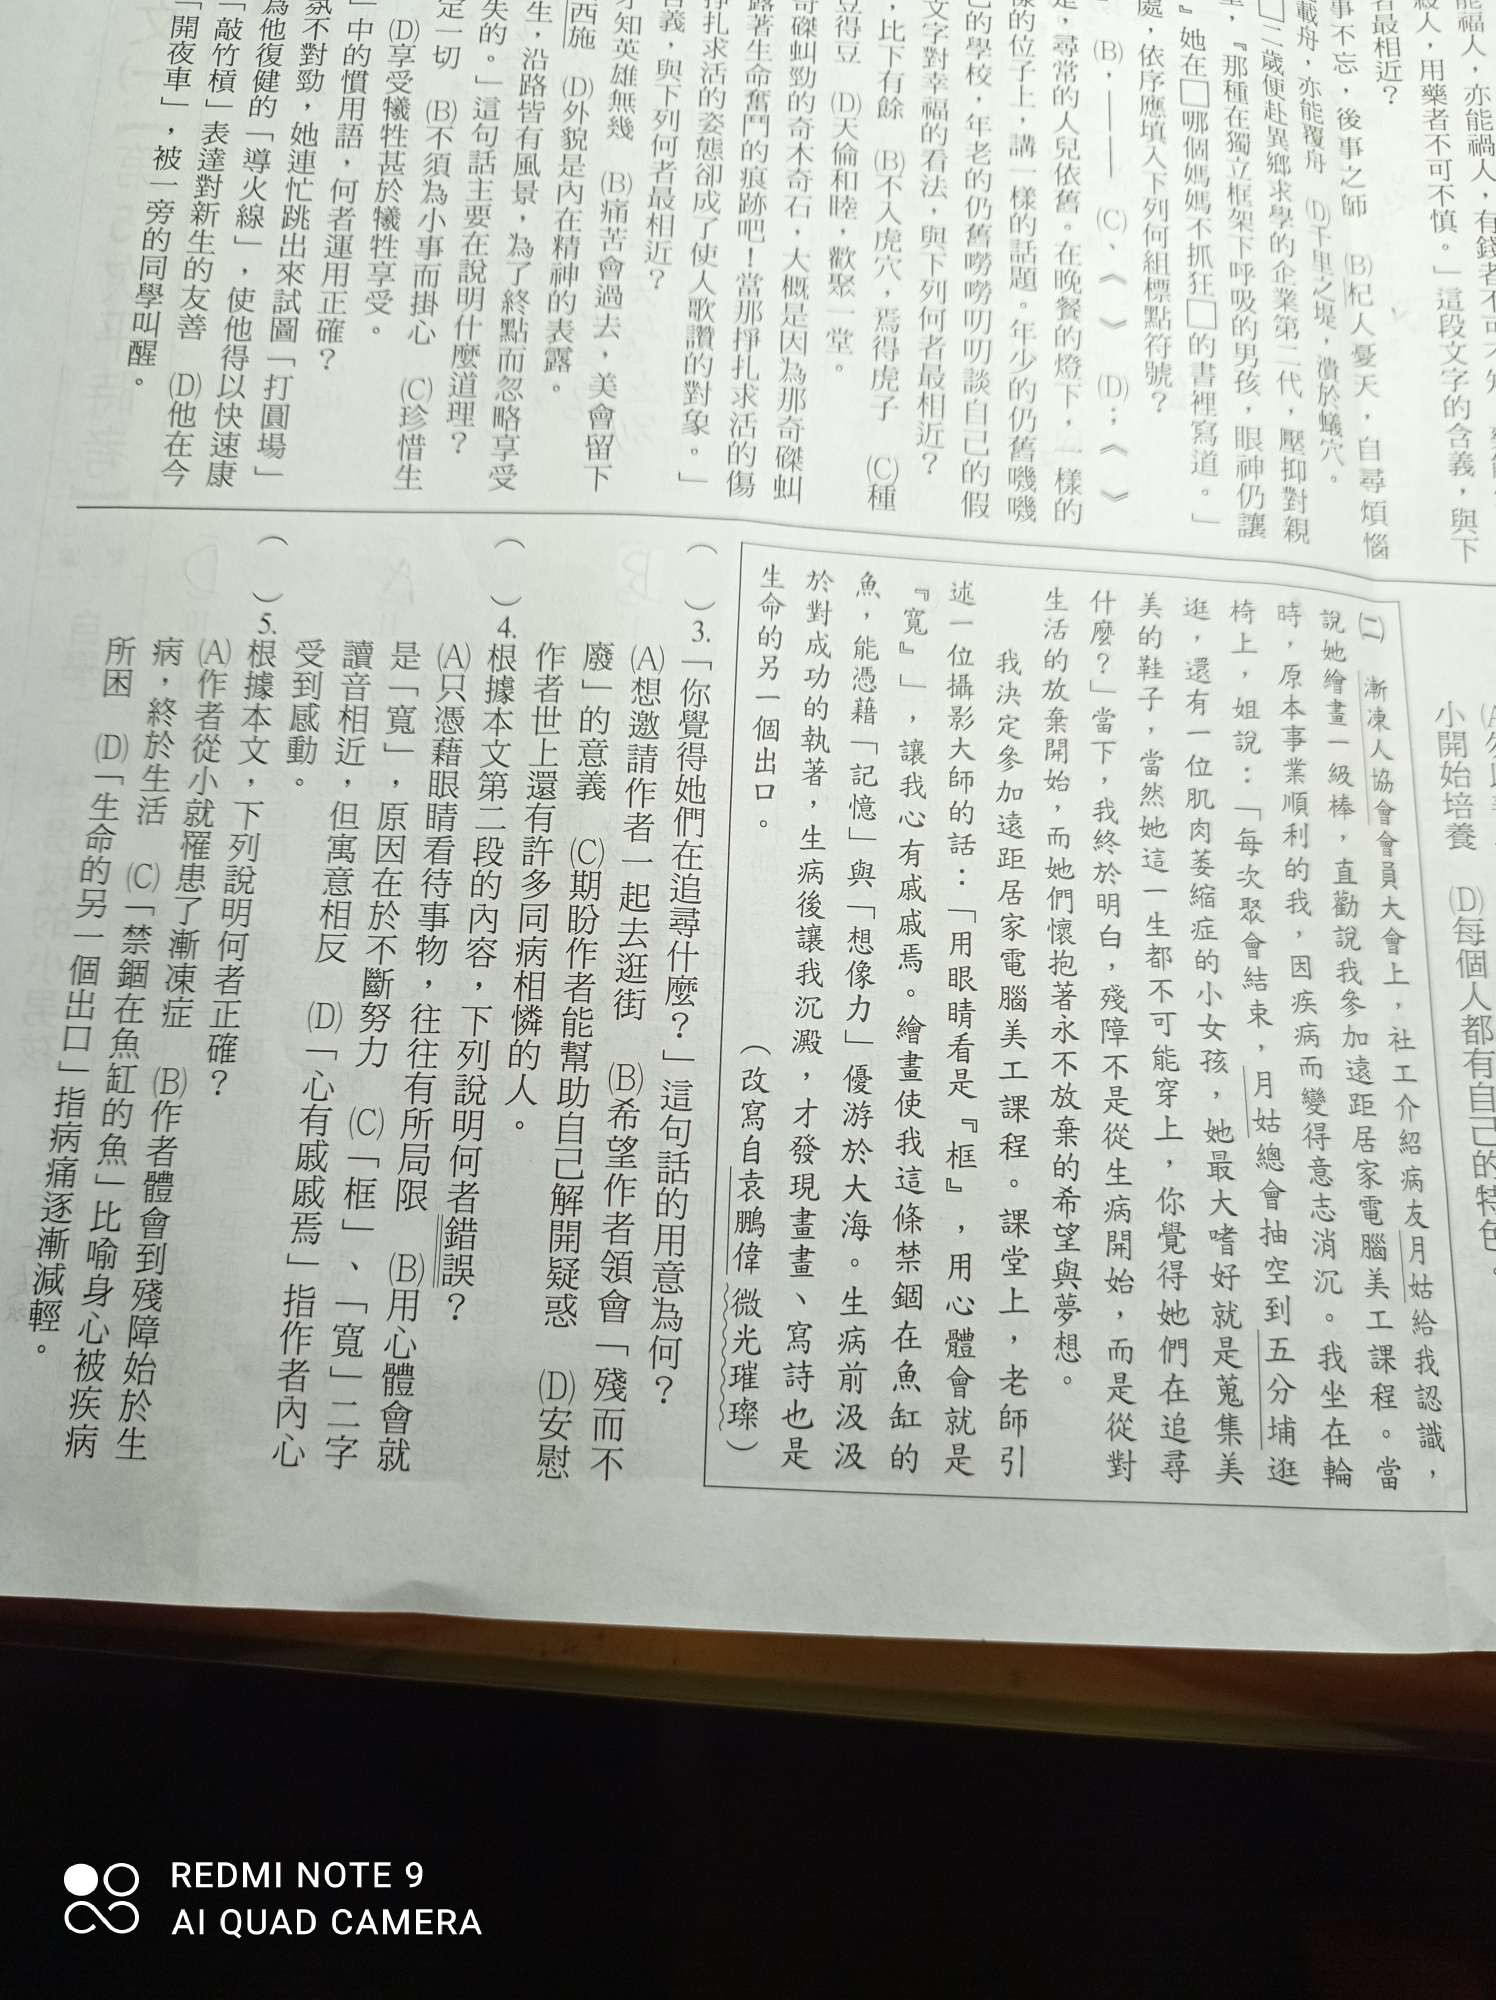 能福人，亦能禍人，有錢者不可不
殺人，用藥者不可不慎。」這段文字的含義，與下
者最相近？
事不忘，後事之師　(B)杞人憂天，自尋煩惱
載舟，亦能覆舟　(D)千里之堤，潰於蟻穴。
□二歲便赴異鄉求學的企業第二代，壓抑對親
，『那種在獨立框架下呼吸的男孩，眼神仍讓
』她在□哪個媽媽不抓狂□的書裡寫道。」
處，依序應填入下列何組標點符號？
(B)，——　(C)、《　》　(D)；《　》
是，尋常的人兒依舊。在晚餐的燈下，一樣的
樣的位子上，講一樣的話題。年少的仍舊嘰嘰
己的學校，年老的仍舊嘮嘮叨叨談自己的假
文字對幸福的看法，與下列何者最相近？
，比下有餘　(B)不入虎穴，焉得虎子　(C)種
豆得豆　(D)天倫和睦，歡聚一堂。
奇磔虬勁的奇木奇石，大概是因為那奇磔虬
露著生命奮鬥的痕跡吧！當那掙扎求活的傷
掙扎求活的姿態卻成了使人歌讚的對象。」
含義，與下列何者最相近？
才知英雄無幾　(B)痛苦會過去，美會留下
西施　(D)外貌是內在精神的表露。
生，沿路皆有風景，為了終點而忽略享受
失的。」這句話主要在說明什麼道理？
定一切　(B)不須為小事而掛心　(C)珍惜生
(D)享受犧牲甚於犧牲享受。
」中的慣用語，何者運用正確？
氛不對勁，她連忙跳出來試圖「打圓場」
為他復健的「導火線」，使他得以快速康
「敲竹槓」表達對新生的友善　(D)他在今
「開夜車」，被一旁的同學叫醒。
小開始培養　(D)每個人都有自己的特色。
(二)漸凍人協會會員大會上，社工介紹病友月姑給我認識，
說她繪畫一級棒，直勸說我參加遠距居家電腦美工課程。當
時，原本事業順利的我，因疾病而變得意志消沉。我坐在輪
椅上，姐說：「每次聚會結束，月姑總會抽空到五分埔逛
逛，還有一位肌肉萎縮症的小女孩，她最大嗜好就是蒐集美
美的鞋子，當然她這一生都不可能穿上，你覺得她們在追尋
什麼？」當下，我終於明白，殘障不是從生病開始，而是從對
生活的放棄開始，而她們懷抱著永不放棄的希望與夢想。
我決定參加遠距居家電腦美工課程。課堂上，老師引
述一位攝影大師的話：「用眼睛看是『框』，用心體會就是
『寬』」，讓我心有戚戚焉。繪畫使我這條禁錮在魚缸的
魚，能憑藉「記憶」與「想像力」優游於大海。生病前汲汲
於對成功的執著，生病後讓我沉澱，才發現畫畫、寫詩也是
生命的另一個出口。　（改寫自袁鵬偉微光璀璨）
(　)3.「你覺得她們在追尋什麼？」這句話的用意為何？
(A)想邀請作者一起去逛街　(B)希望作者領會「殘而不
廢」的意義　(C)期盼作者能幫助自己解開疑惑　(D)安慰
作者世上還有許多同病相憐的人。
(　)4.根據本文第二段的內容，下列說明何者錯誤？
(A)只憑藉眼睛看待事物，往往有所局限　(B)用心體會就
是「寬」，原因在於不斷努力　(C)「框」、「寬」二字
讀音相近，但寓意相反　(D)「心有戚戚焉」指作者內心
受到感動。
(　)5.根據本文，下列說明何者正確？
(A)作者從小就罹患了漸凍症　(B)作者體會到殘障始於生
病，終於生活　(C)「禁錮在魚缸的魚」比喻身心被疾病
所困　(D)「生命的另一個出口」指病痛逐漸減輕。
REDMI NOTE 9
AI QUAD CAMERA